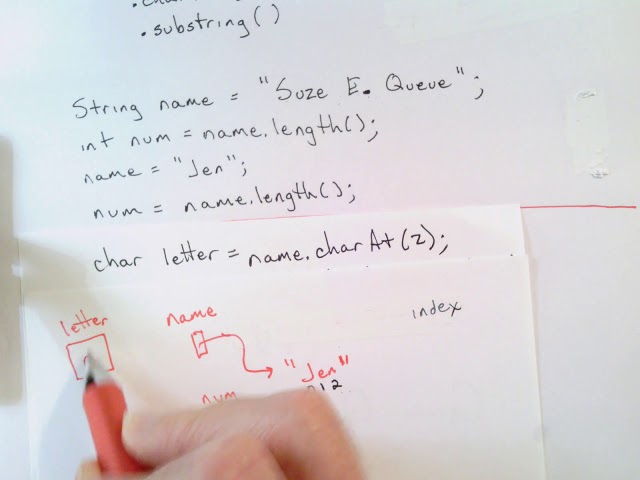 .substring()
String name = "Suze E. Queue";
int num = name.length();
name = "Jen";
num = name.length();
char letter = name.charAt(2);
letter name index
"Jen"
012
num